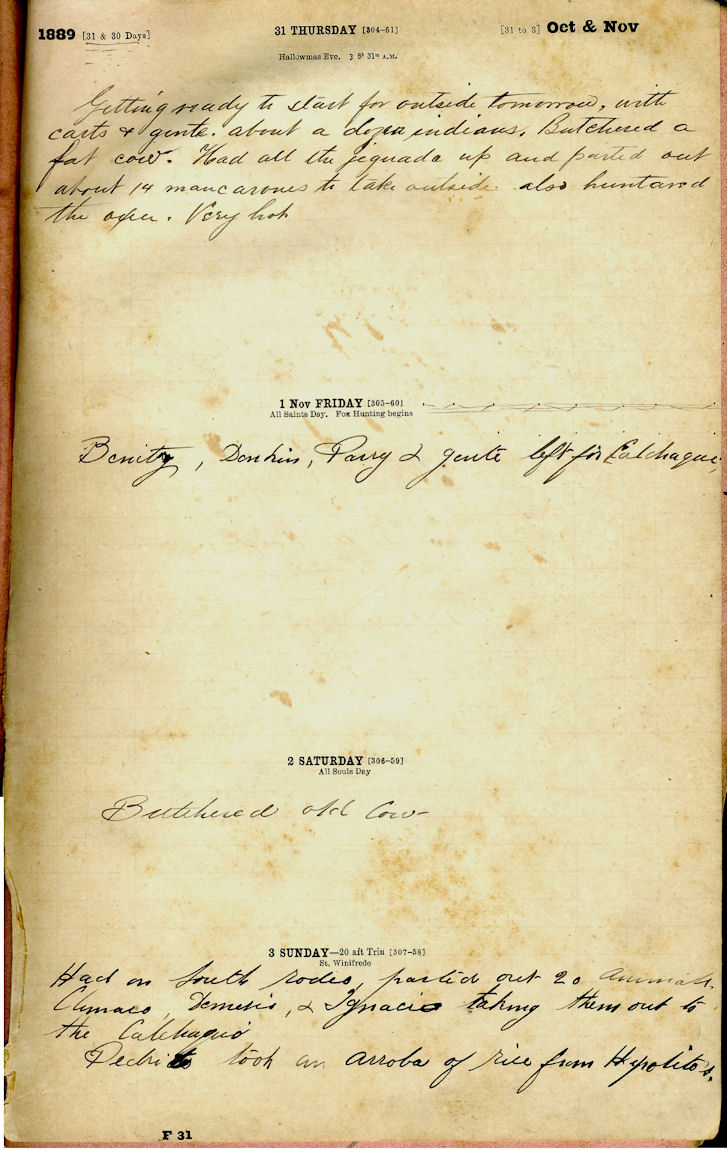 1889 [31 & 30 Days] 31 THURSDAY [304-61] [31 to 3] Oct & Nov
Hallowmas Eve. ☽ 8h 31m A.M.
Getting ready to start for outside tomorrow, with
carts & gente. about a dozen indians. Butchered a
fat cow. Had all the yeguada up and parted out
about 14 mancarones to take outside. also
the oxen. Very hot
1 Nov FRIDAY [305-60]
All Saints Day. Fox Hunting begins
Benity, Parry & gente left for Calchaqui,
2 SATURDAY [306-59]
All Souls Day
Butchered old Cow
3 SUNDAY—20 aft Trin [307-58]
St. Winifrede
Had on South rodeo, parted out 20 animals,
Climaco, Demesio, & Ignacio taking them out to
the Calchaqui
Pedrito took an arroba of rice from Hipolito's.
F 31